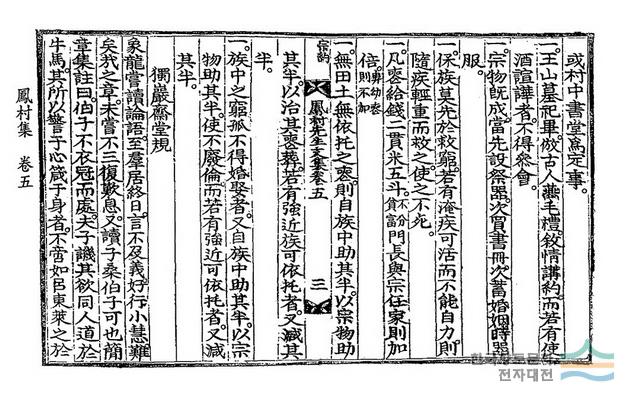 或村中書堂爲定事。
一。王山墓祀畢。倣古人燕毛禮。敍情講約。而若有使
酒諠譁者。不得參會。
一。宗物旣成。當先設祭器。次買書冊。次蓄婚姻時器
服。
一。保族莫先於救窮。若有淹疾可活而不能自力。則
隨疾輕重而救之。使之不死。
一。凡窆給錢二貫米五斗。不分貧富 門長與宗任家則加
倍。弟幼窆則不加
一。無田土無依托之窆。則自族中助其半。以宗物助
鳳村先生文集卷五
三
其半。以治其喪葬。若有強近族可依托者。又減其
半。
一。族中之窮孤不得婚娶者。又自族中助其半。以宗
物助其半。使不廢倫。而若有強近可依托者。又減
其半。
獨巖齋堂規
象龍嘗讀論語。至羣居終日。言不及義。好行小慧。難
矣哉之章。未嘗不三復歎息。又讀子桑伯子可也簡
章。集註曰。伯子不衣冠而處。夫子譏其欲同人道於
牛馬。其所以警予心箴予身者。不啻如呂東萊之於
鳳村集 卷五
한국고전종합
전자대전